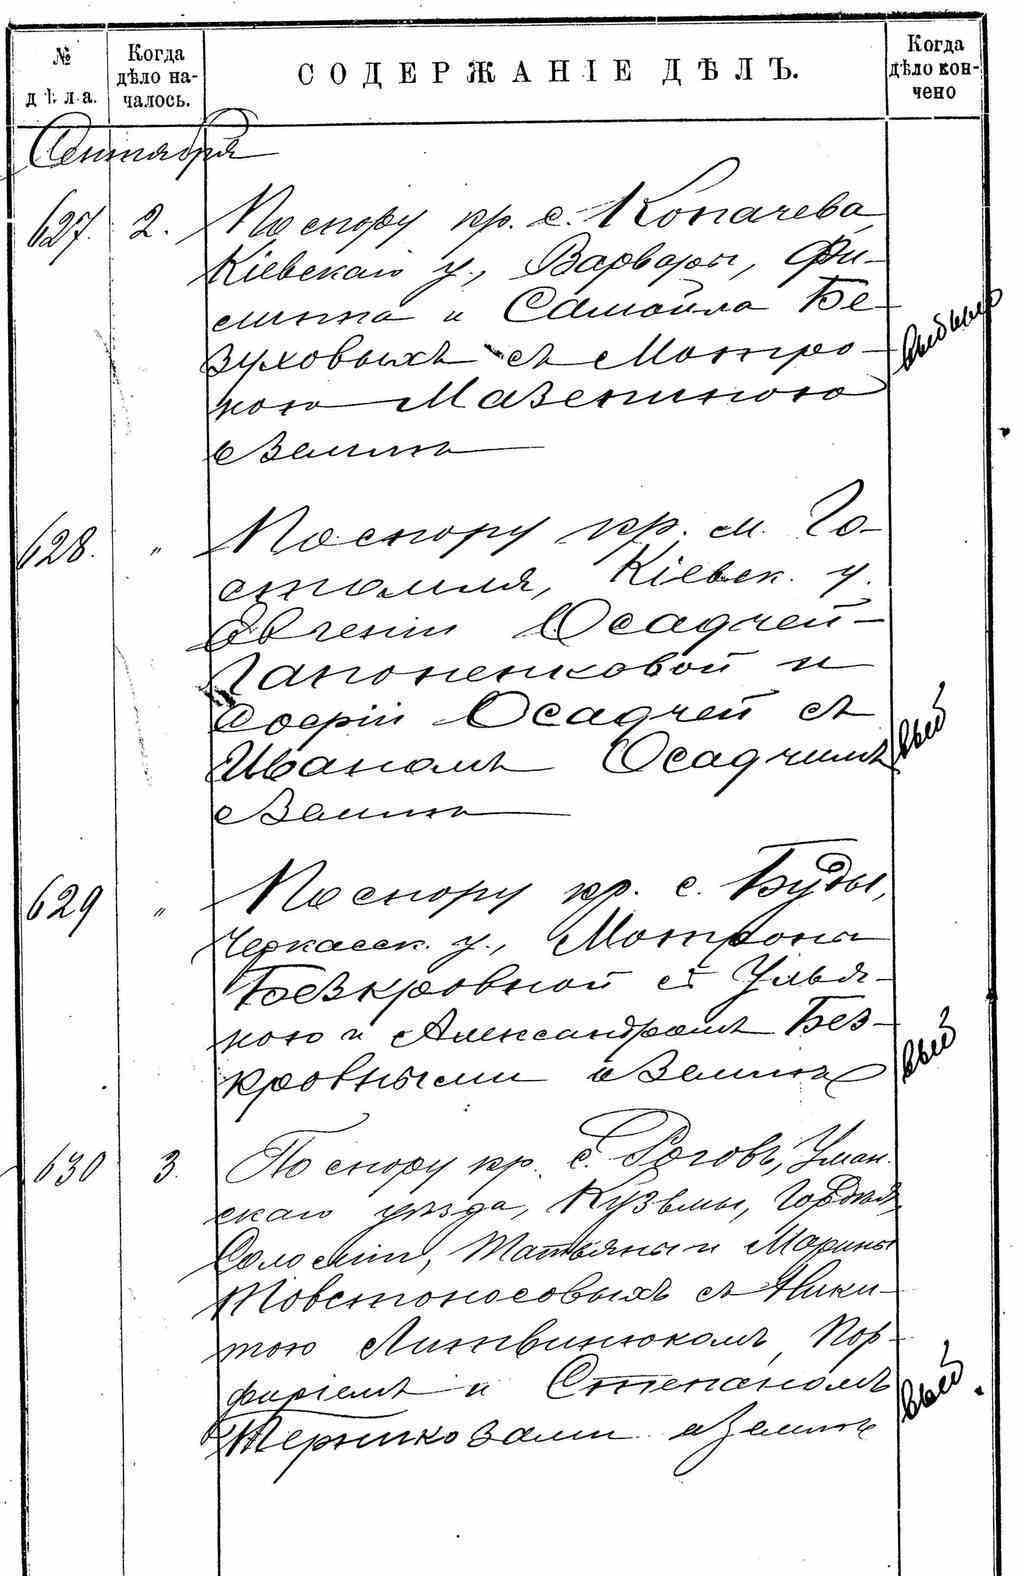 № дѣла.
Когда дѣло началось.
СОДЕРЖАНІЕ ДѢЛЪ.
Когда дѣло кончено
Сентября
627. 2. По спору кр. с. Копачева,
Кіевскаго у., Варвары, Фи-
липпа и Самойла Бе-
зуховыхъ съ Мотро-
ною Мазепиною
о землѣ
выбыло
628. " По спору кр. м. Го-
стомля, Кіевск. у.
Евгеніи Осадчей-
Гапоненковой и
Софіи Осадчей съ
Иваномъ Осадчимъ
о землѣ
выб
629 " По спору кр. с. Буды,
Черкасск. у., Мотроны
Безкровной съ Улья-
ною и Александромъ Без-
кровными о землѣ
выб
630 3. По спору кр. с. Роговъ, Уман-
скаго уѣзда, Кузьмы, Гордѣя,
Соломіи, Татьяны и Марины
Товстоносовыхъ съ Ники-
тою Литвинюкомъ, Пор-
фиріемъ и Степаномъ
о землѣ
выб